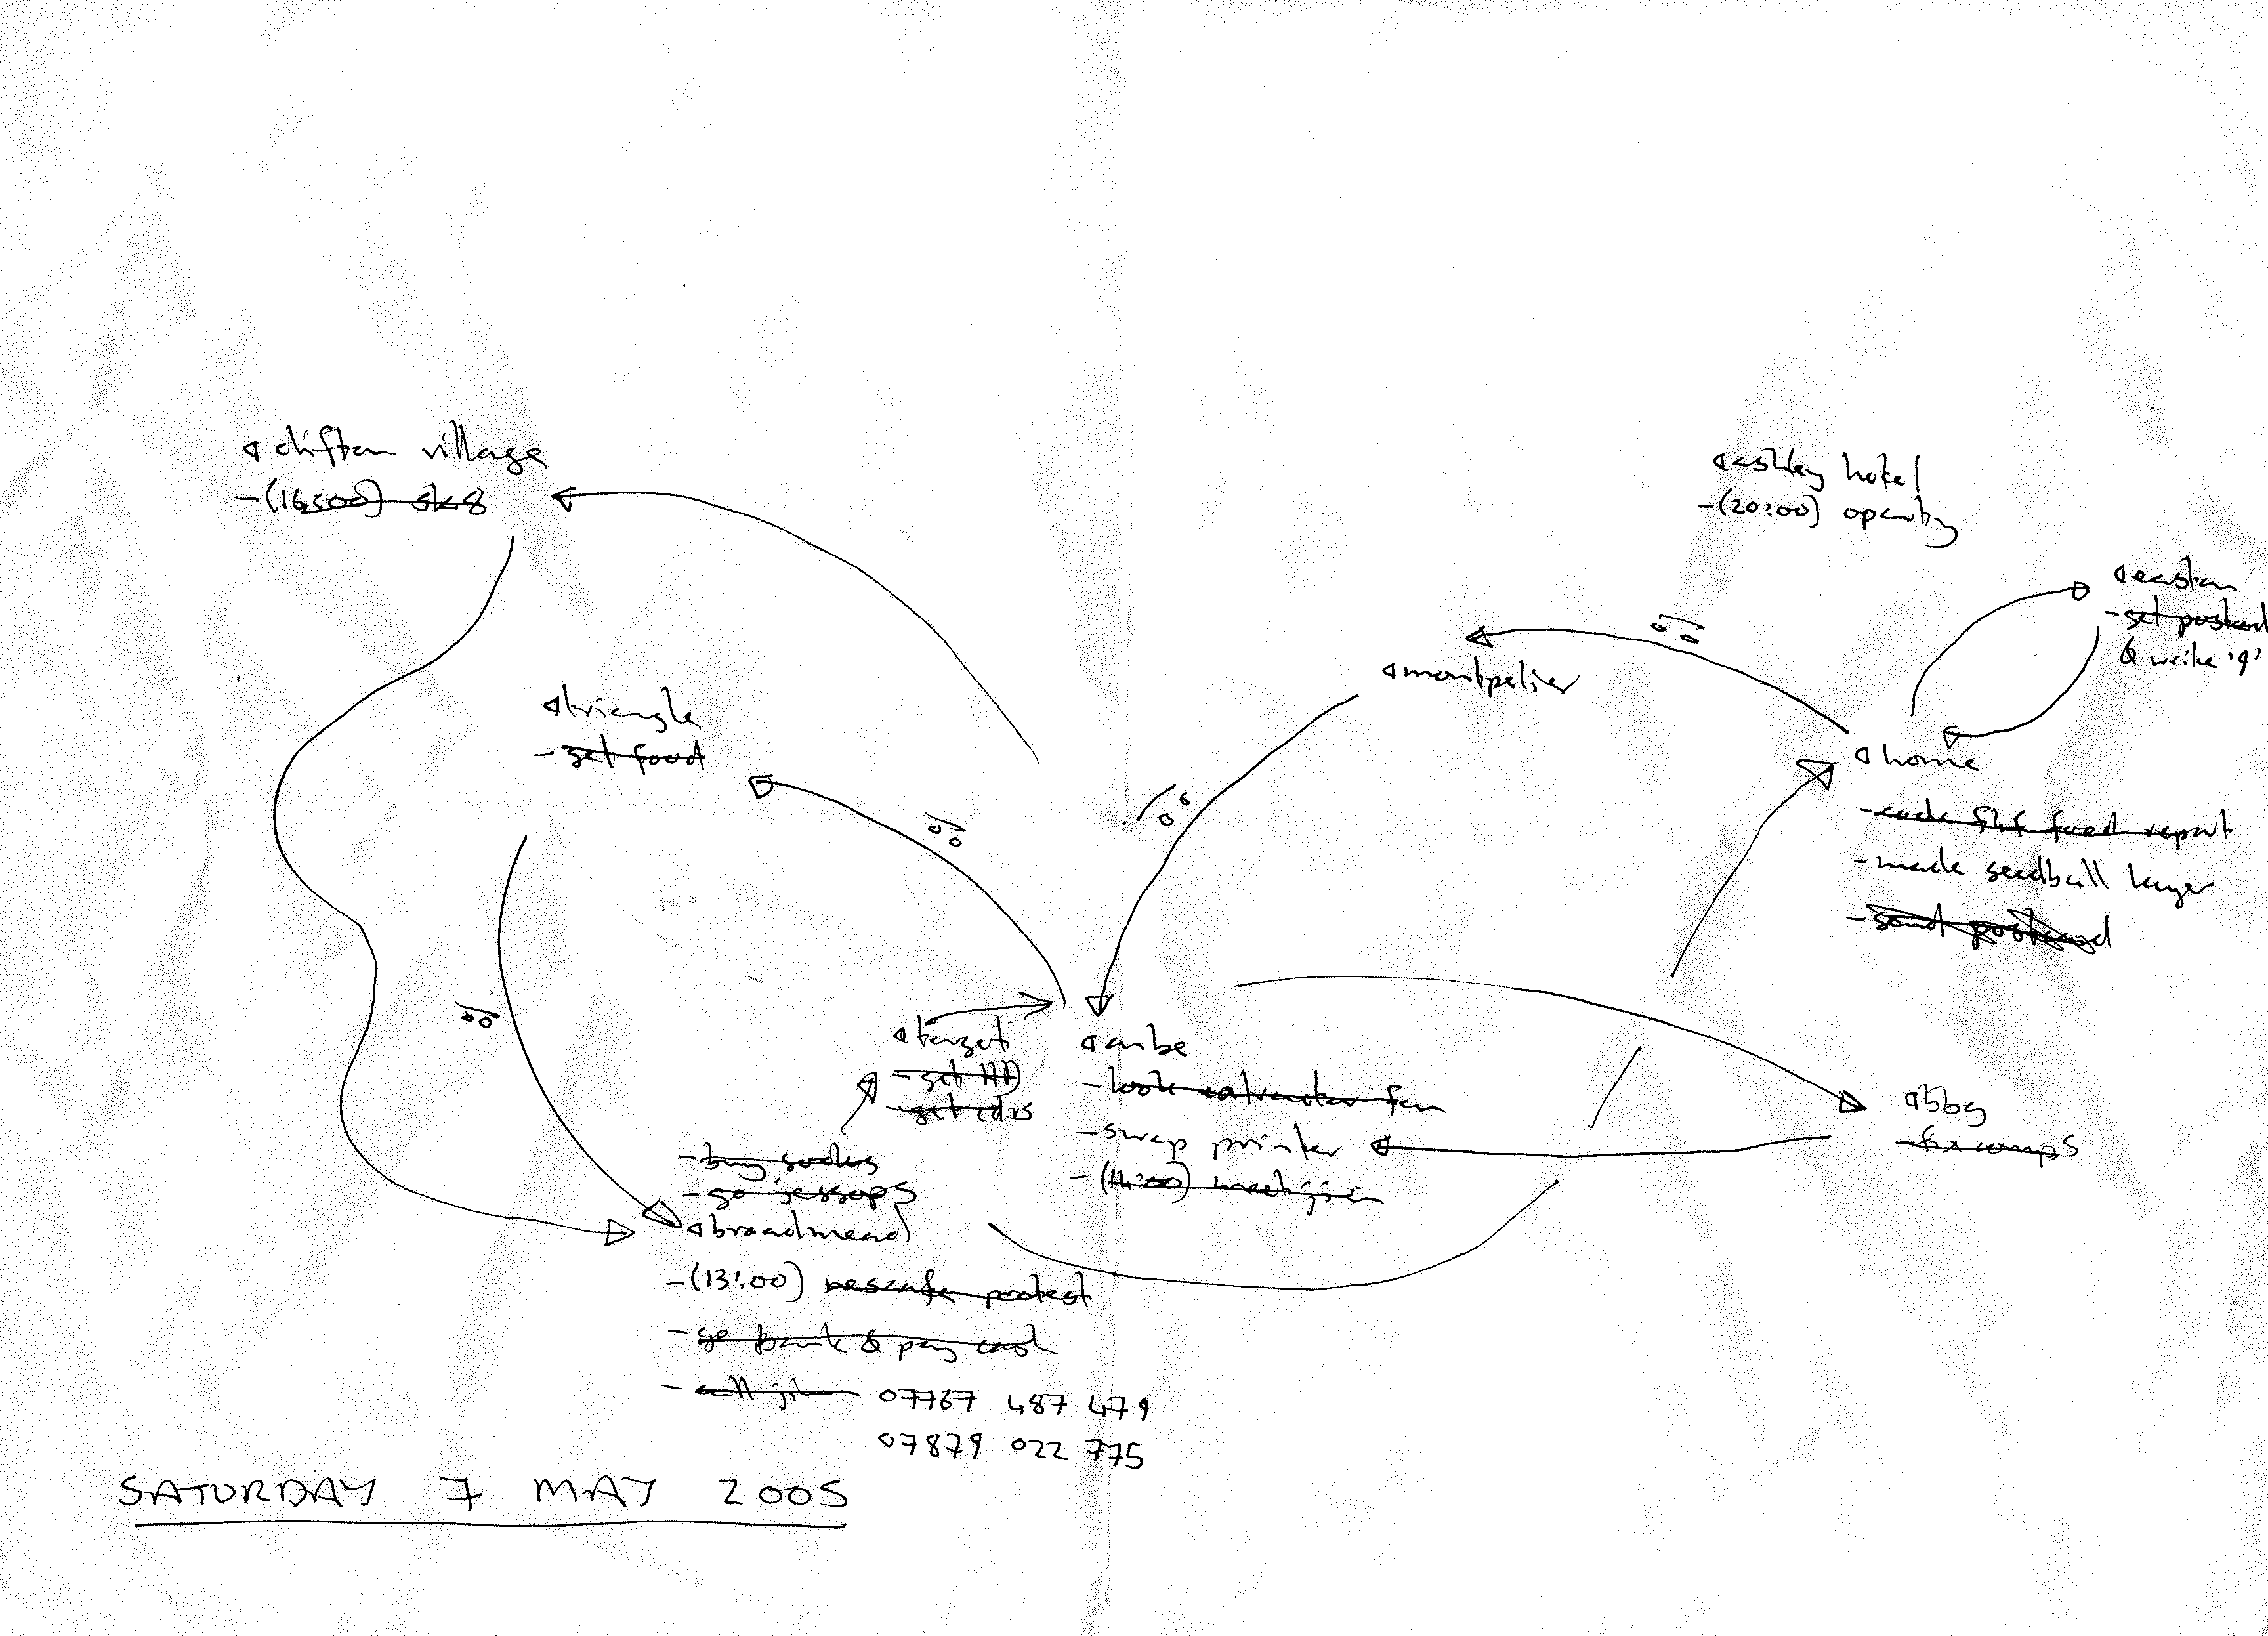 clifton village
-(16:00) sk8
ashley hotel
-(20:00)
easton
-get postcard
& write '9'
montpelier
triangle
-get food
home
-code fhf food report
-made seedball layer
-send postcard
target
-get HD
-get cdrs
cube
-look extractor fan
-swap printer
-(14:00) meet
bbg
-fix comps
-buy socks
-go jessops
broadmead
-(13:00) nescafe protest
-go bank & pay cash
-call 07767 487 479
07879 022 775
SATURDAY 7 MAY 2005